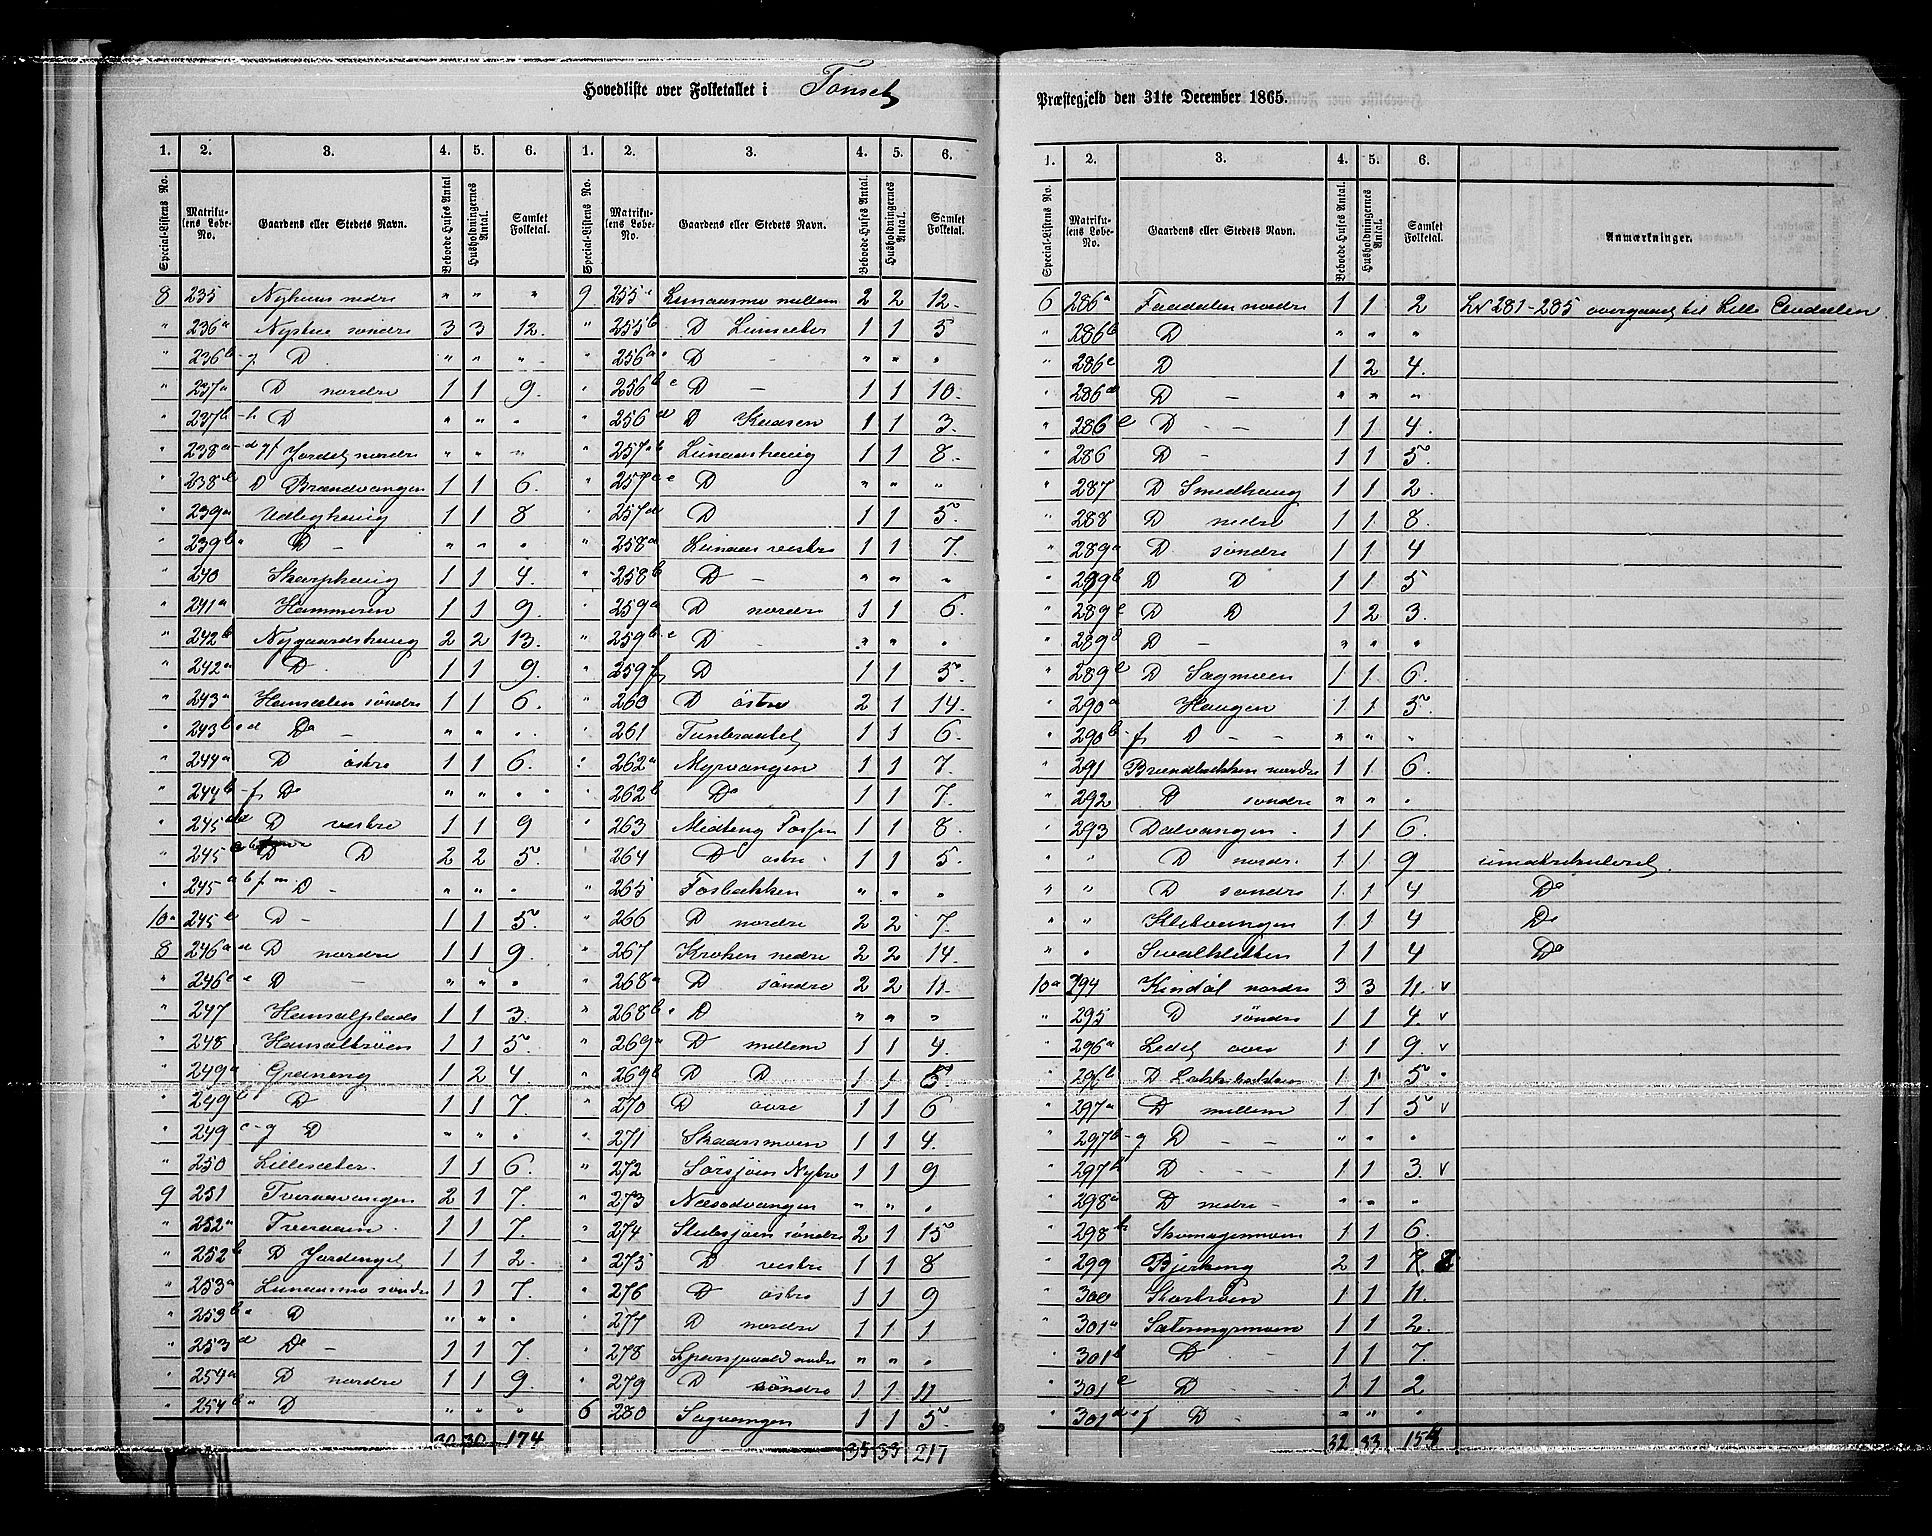 Hovedliste over Folketallet i Tønset
Præstegjeld den 31te December 1865.
1. 2. 3. 4. 5. 6. 1. 2. 3. 4. 5. 6.
Special-Listens No. Matrikulens Løbe-No. Gaardens eller Stedets Navn. Beboede Huses Antal. Husholdningernes Antal. Samlet Folketal. Special-Listens No. Matrikulens Løbe-No. Gaardens eller Stedets Navn. Beboede Huses Antal. Husholdningernes Antal. Samlet Folketal.
8 235 Nyhuus nedre " " "
" 236a Nystue søndre 3 3 12.
" 236b-g D " " "
" 237a D nordre 1 1 9.
" 237b-h D " " "
" 238a-d gf Jordet nordre " " "
" 238e D Brændvangen 1 1 6.
" 239a Udlighaug 1 1 8
" 239b D " " "
" 240 Skarphaug 1 1 4.
" 241a Hammeren 1 1 9.
" 242b Nygaardshaug 2 2 13.
" 242a D 1 1 9.
" 243a Hamsalen søndre 1 1 6.
" 243b c d Do " " "
" 244a D østre 1 1 6.
" 244b-f Do " " "
" 245 D vestre 1 1 9
" 245 D D 2 2 5.
" 245a b f m D " " "
10a 245 D 1 1 5.
8 246a d D nordre 1 1 9.
" 246 D " " "
" 247 Hamsalplads 1 1 3.
" 248 Hamaltrøen 1 1 5.
" 249a Græneng 1 2 4
" 249b D 1 1 7.
" 249c-g D " " "
" 250 Lillesæter 1 1 6.
9 251 Tveraavangen 2 1 7.
" 252a Tveraaen 1 1 7.
" 252b D Jordenget 1 1 2.
" 253a Lunaasmo søndre 1 1 7.
" 253b D " " "
" 253d Do 1 1 7.
" 254a D nordre 1 1 9.
" 254b D " " "
30 30 174
9 255a Lunaasmo mellem 2 2 12.
" 255b D Lunsæter 1 1 5
" 256a D " " "
" 256b c D 1 1 10.
" 256d D Kndsen 1 1 3.
" 257b Lunaashaug 1 1 8.
" 257a c D " " "
" 257d D 1 1 5.
" 258a Lunaas vestre 1 1 7.
" 258b D " " "
" 259a D nordre 1 1 6.
" 259b-e D " " "
" 259f D 1 1 5.
" 260 D østre 2 1 14.
" 261 Tunbraatet 1 1 6.
" 262a Myrvangen 1 1 7.
" 262b Do 1 1 7.
" 263 Midteng Fossen 1 1 8.
" 264 D østre 1 1 5.
" 265 Fosbakken " " "
" 266 D nordre 2 2 7.
" 267 Kroken nedre 2 2 14.
" 268a D søndre 2 2 11.
" 268b D " " "
" 269a D mellem 1 1 4.
" 269b D D 1 1 5
" 270 D øvre 1 1 6
" 271 Skaarsmoen 1 1 4.
" 272 Sørsjøen Nybro 1 1 9
" 273 Næsodvangen " " "
" 274 Stubsjøen søndre 2 1 15
" 275 D vestre 1 1 8
" 276 D østre 1 1 9
" 277 D nordre 1 1 1
" 278 " " "
" 279 D søndre 1 1 11
6 280 Sagvangen 1 1 5.
35 33 217
1. 2. 3. 4. 5. 6.
Special-Listens No. Matrikulens Løbe-No. Gaardens eller Stedets Navn. Beboede Huses Antal. Husholdningernes Antal. Samlet Folketal. Anmærkninger.
6 286a Faadalen nordre 1 1 2 LN 281-285 overgaaet til Lille Elvdalen
" 286b D " " "
" 286c D 1 2 4.
" 286d D " " "
" 286e D 1 1 4.
" 286 D 1 1 5.
" 287 D Smedhaug 1 1 2.
" 288 D nedre 1 1 8.
" 289a D søndre 1 1 4
" 289b D D 1 1 5
" 289c D D 1 2 3.
" 289d D " " "
" 289e D Sagmoen 1 1 6.
" 290a Haugen 1 1 5.
" 290b-f D " " "
" 291 Brændbakken nordre 1 1 6.
" 292 D søndre " " "
" 293 Dalvangen 1 1 6.
" " D nordr. 1 1 9 umatrikuleret
" " D søndre 1 1 4 Do
" " Kletvangen 1 1 4 Do
" " Svalkletten 1 1 4 Do
10a 294 Kindøl nordre 3 3 11. v
" 295 D søndre 1 1 4. v
" 296a Ledet øvre 1 1 9. v
" 296b D 1 1 5 "
" 297a D mellem 1 1 5 v
" 297b-g D " " "
" 297h D 1 1 3. v
" 298a D nedre " " "
" 298b Skomagermoen 1 1 6.
" 299 Bjørkeng 2 1 7. 8
" 300 Stortrøen 1 1 11.
" 301a Sæteringsmoen 1 1 2.
" 301b D 1 1 7.
" 301c D 1 1 2
" 301d e f D " " "
32 33 153